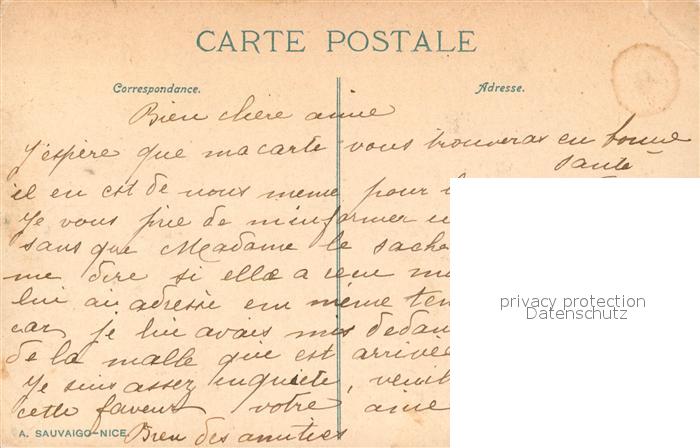 CARTE POSTALE
Correspondance.
Adresse.
Bien chère amie
J'espère que ma carte vous trouveras en bonne
santé
il en est de nous meme pour
Je vous prie de m'informer
sans que Madame le sache
me dire si elle a recu
lui ai adresse en même tem
car je lui avais mis dedan
de la malle que est arrivée
Je suis assez inquiète, veuil
cette faveur votre amie
Bien des amities
A. SAUVAIGO-NICE.
privacy protection
Datenschutz